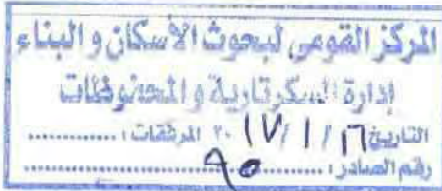 المركز القومى لبحوث الأسكان والبناء
إدارة السكرتارية والمحفوظات
التاريخ ١٦ / ١ / ٢٠١٧ المرفقات : ............
رقم الصادر : ........ ٩٥ ........